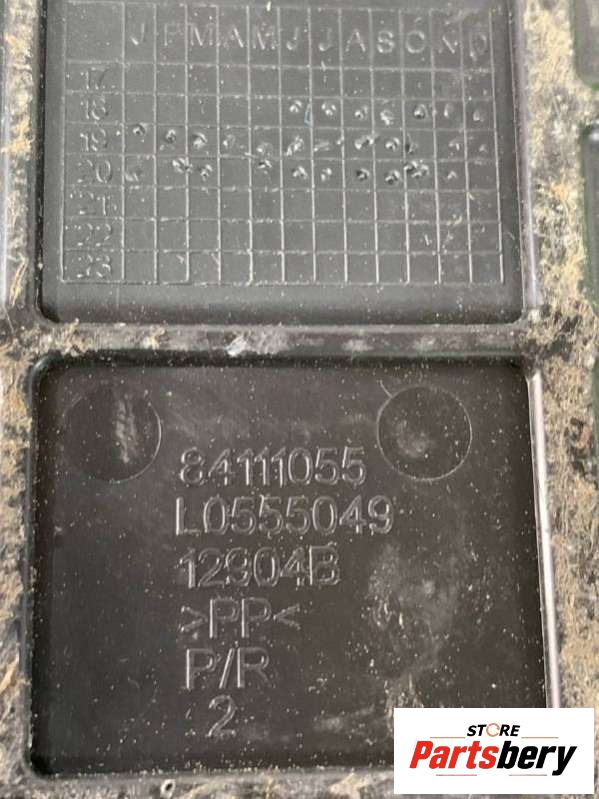 J F M A M J J A S O N D
17
18
19
20
21
22
23
84111055
L0555049
12904B
>PP<
P/R
2
STORE
Partsbery